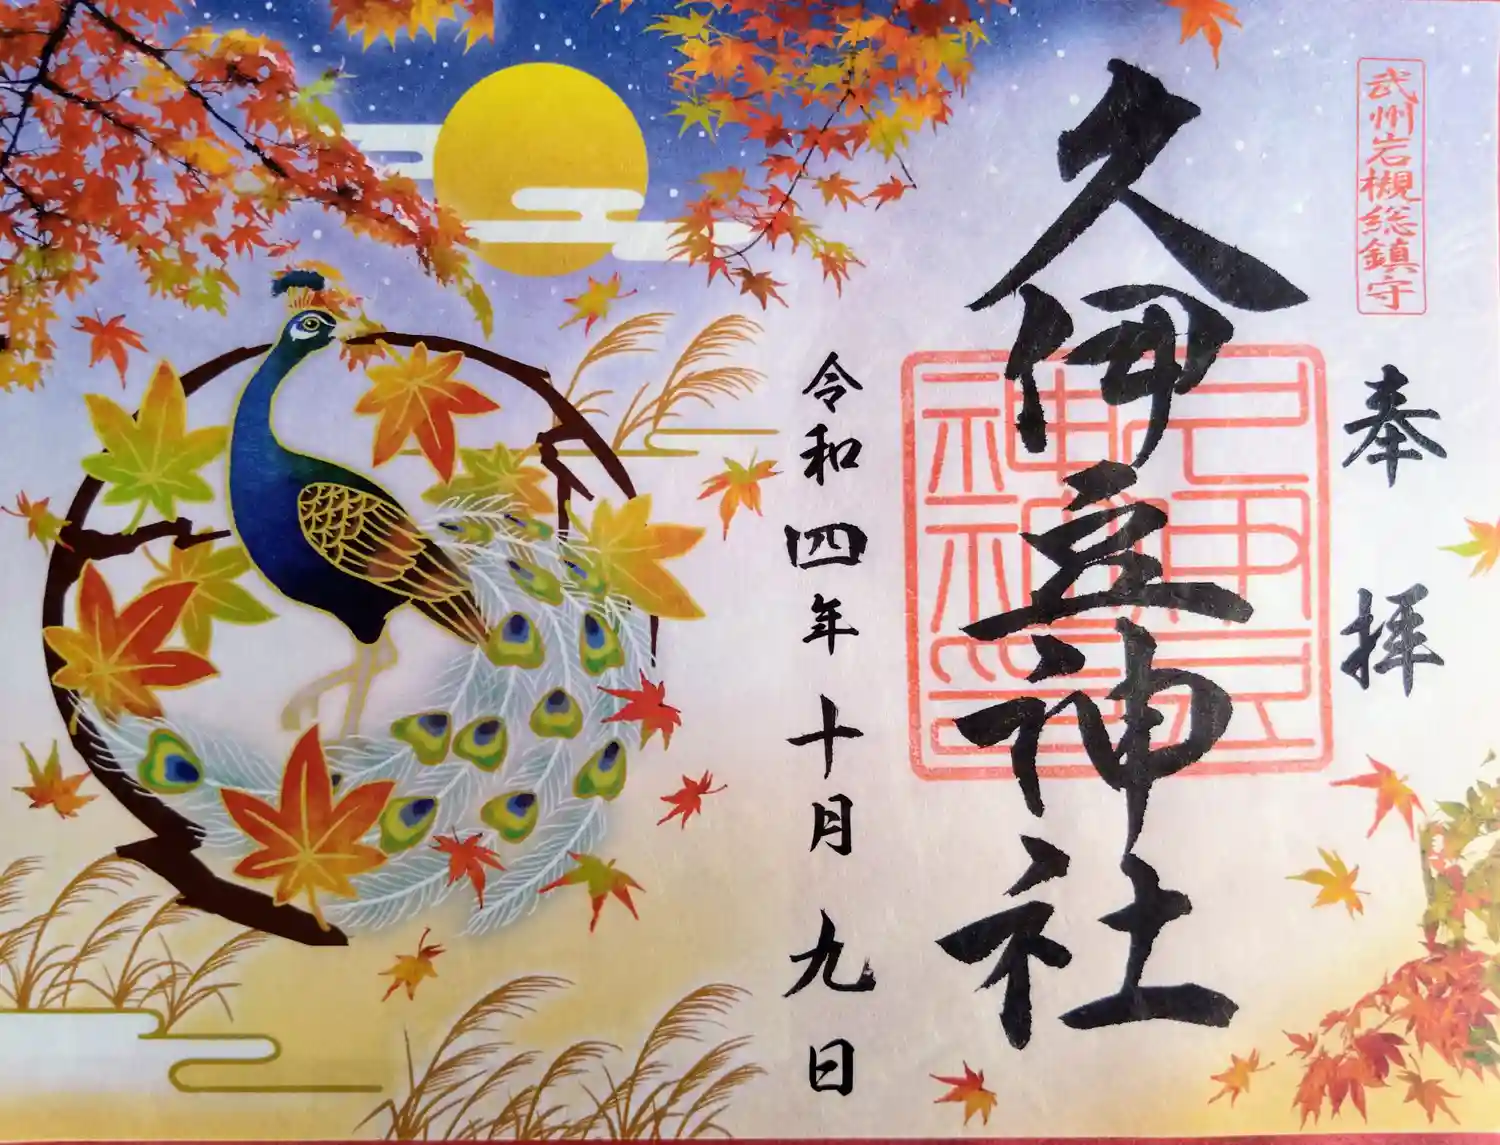 武州岩槻総鎮守
奉拝
久伊豆神社
令和四年十月九日